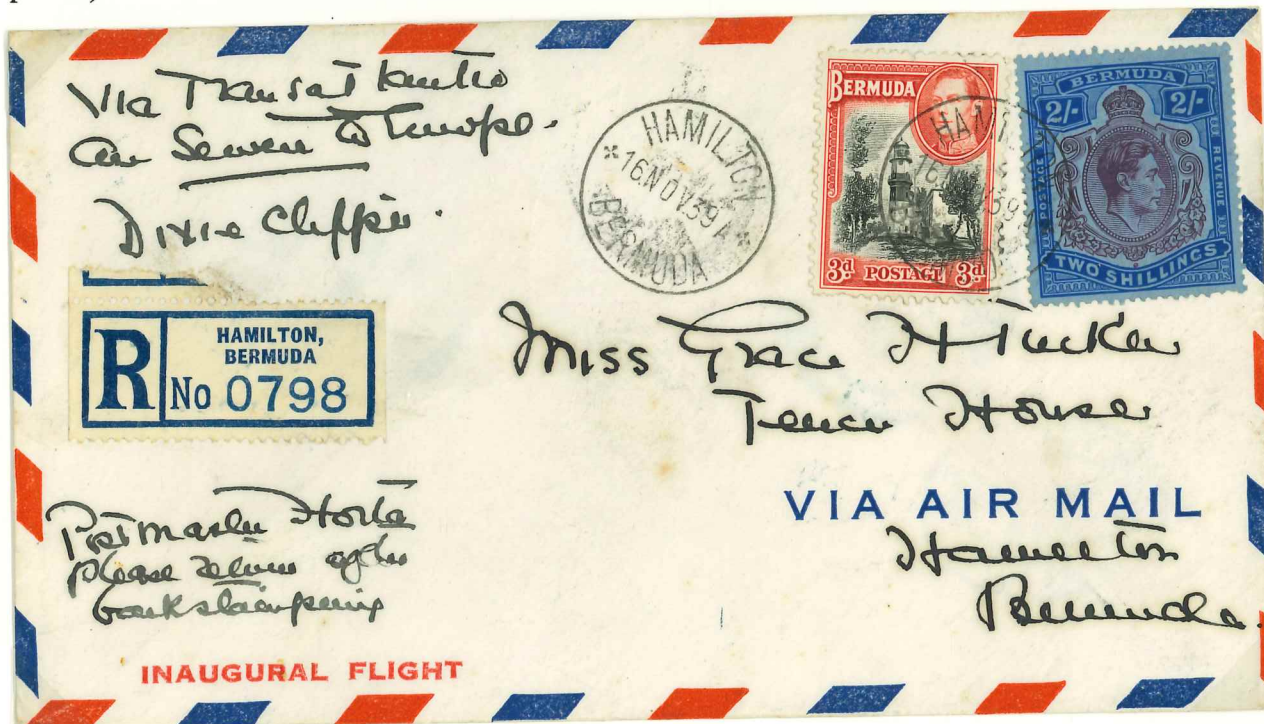 Via Transatlantic
air Service to Europe.
Dixie Clipper.
HAMILTON
16 NOV 39 A
BERMUDA
BERMUDA
3d POSTAGE 3d
HAMILTON
BERMUDA
2/- 2/-
POSTAGE
REVENUE
TWO SHILLINGS
R
HAMILTON,
BERMUDA
No 0798
Miss Grace H Tucker
House
VIA AIR MAIL
Hamilton
Bermuda.
Postmaster Horta
please return after
backstamping
INAUGURAL FLIGHT